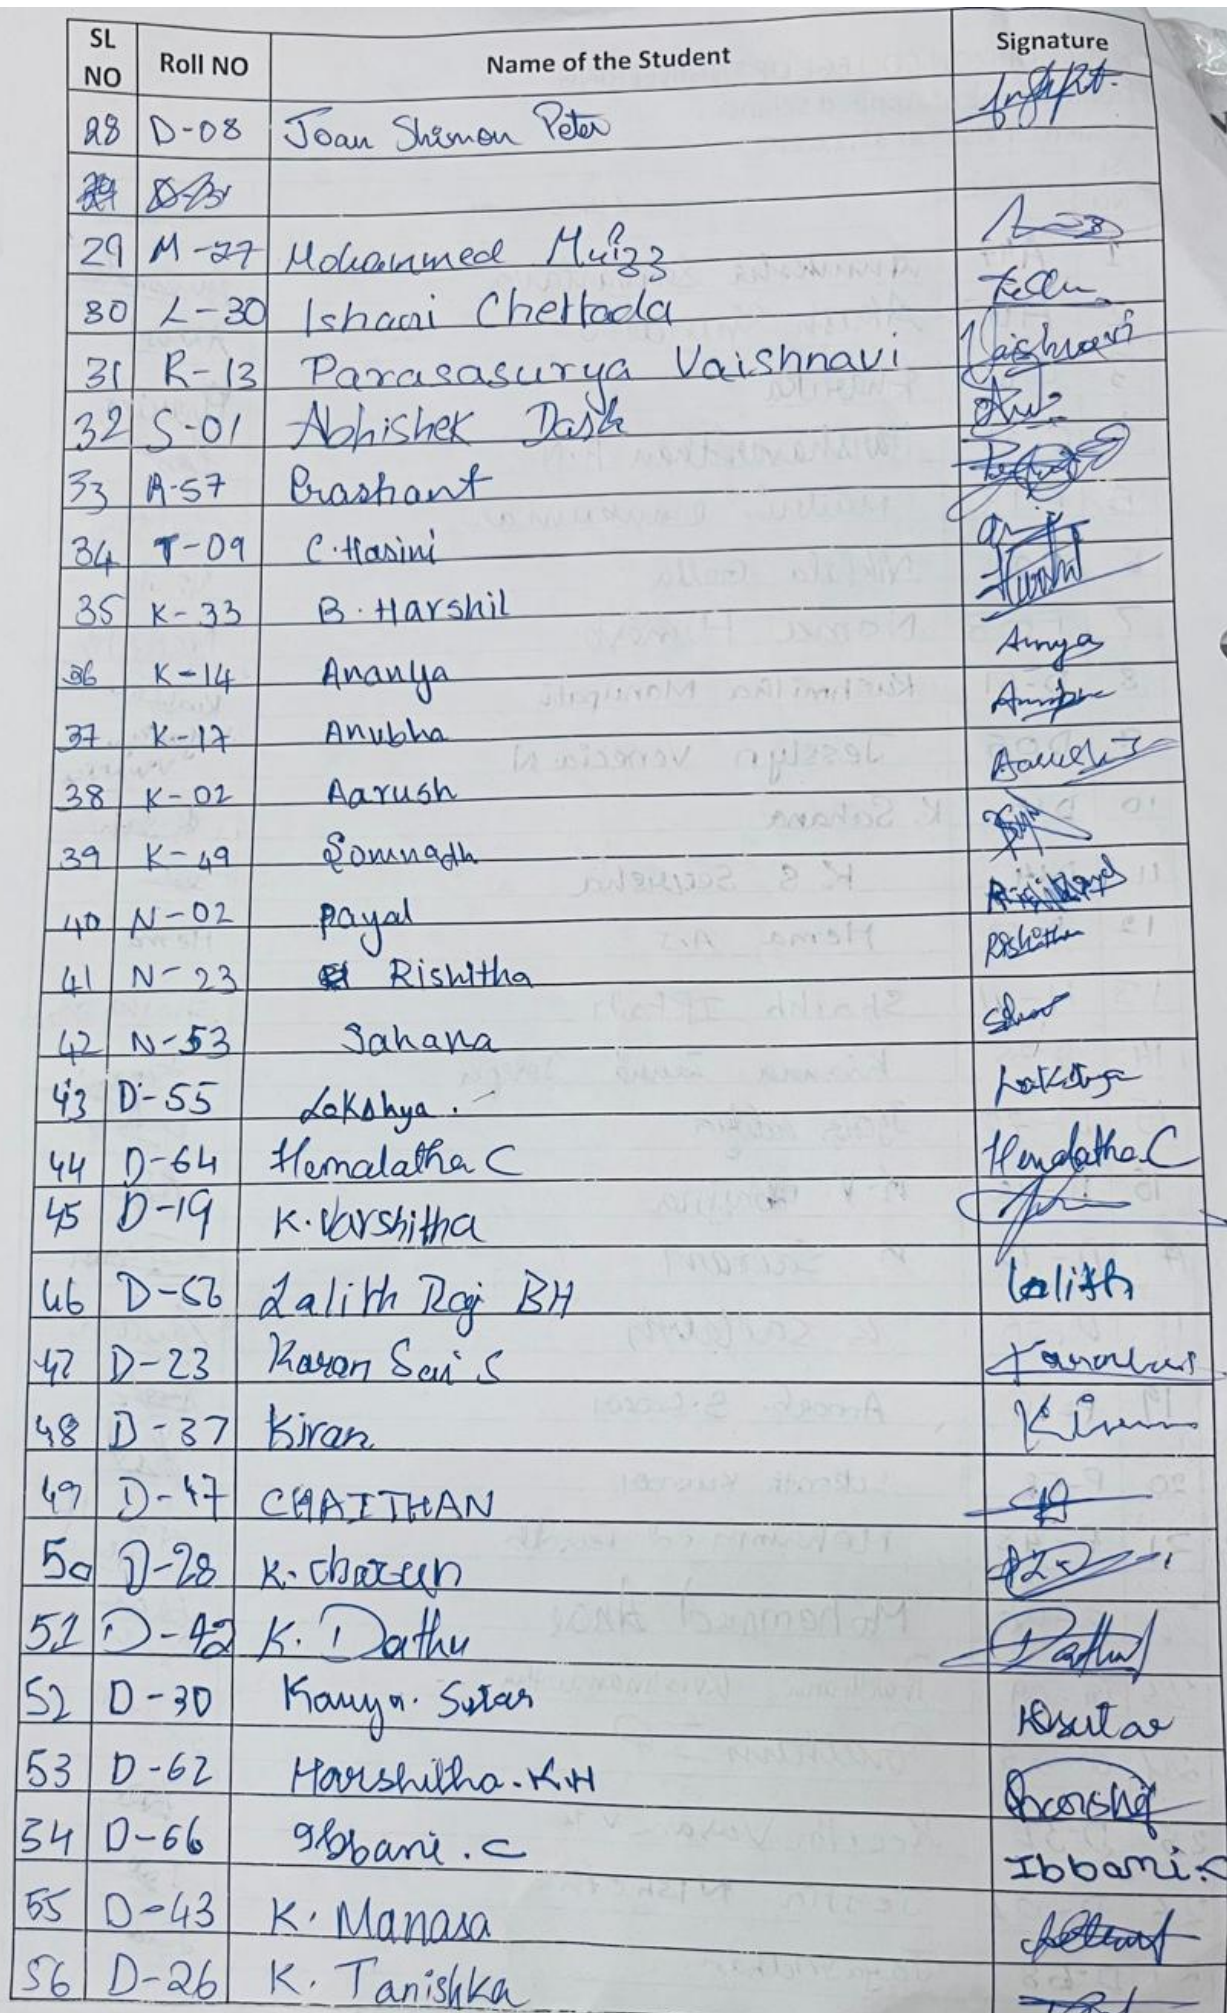 SL NO Roll NO Name of the Student Signature
28 D-08 Joan Shimon Peter
29 M-27 Mohammed Muizz
30 L-30 Ishani Chettada
31 R-13 Parasasurya Vaishnavi Vaishnavi
32 S-01 Abhishek Dash
33 A-57 Prashant
34 T-09 C.Hasini
35 K-33 B. Harshil
36 K-14 Ananya
37 K-17 Anubha
38 K-02 Aarush
39 K-49 Somnadh
40 N-02 Payal
41 N-23 Rishitha Rishitha
42 N-53 Sahana
43 D-55 Lokshya.
44 D-64 Hemalatha C Hemalatha.C
45 D-19 K.Varshitha
46 D-56 Lalith Raj BH Lalith
47 D-23 Karan Sai S
48 D-37 Kiran Kiran
49 D-47 CHAITHAN
50 D-28 K.
51 D-42 K. Dathu Dathu
52 D-30 Kavya. Sutar KSutar
53 D-62 Harshitha.K.H
54 D-66 Ibbani.C Ibbani.C
55 D-43 K. Manasa
56 D-26 K. Tanishka